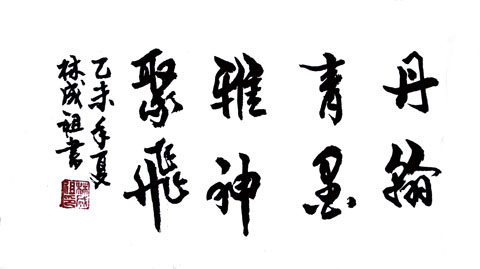 丹青雅聚
翰墨神飛
乙未年夏
林成祖書